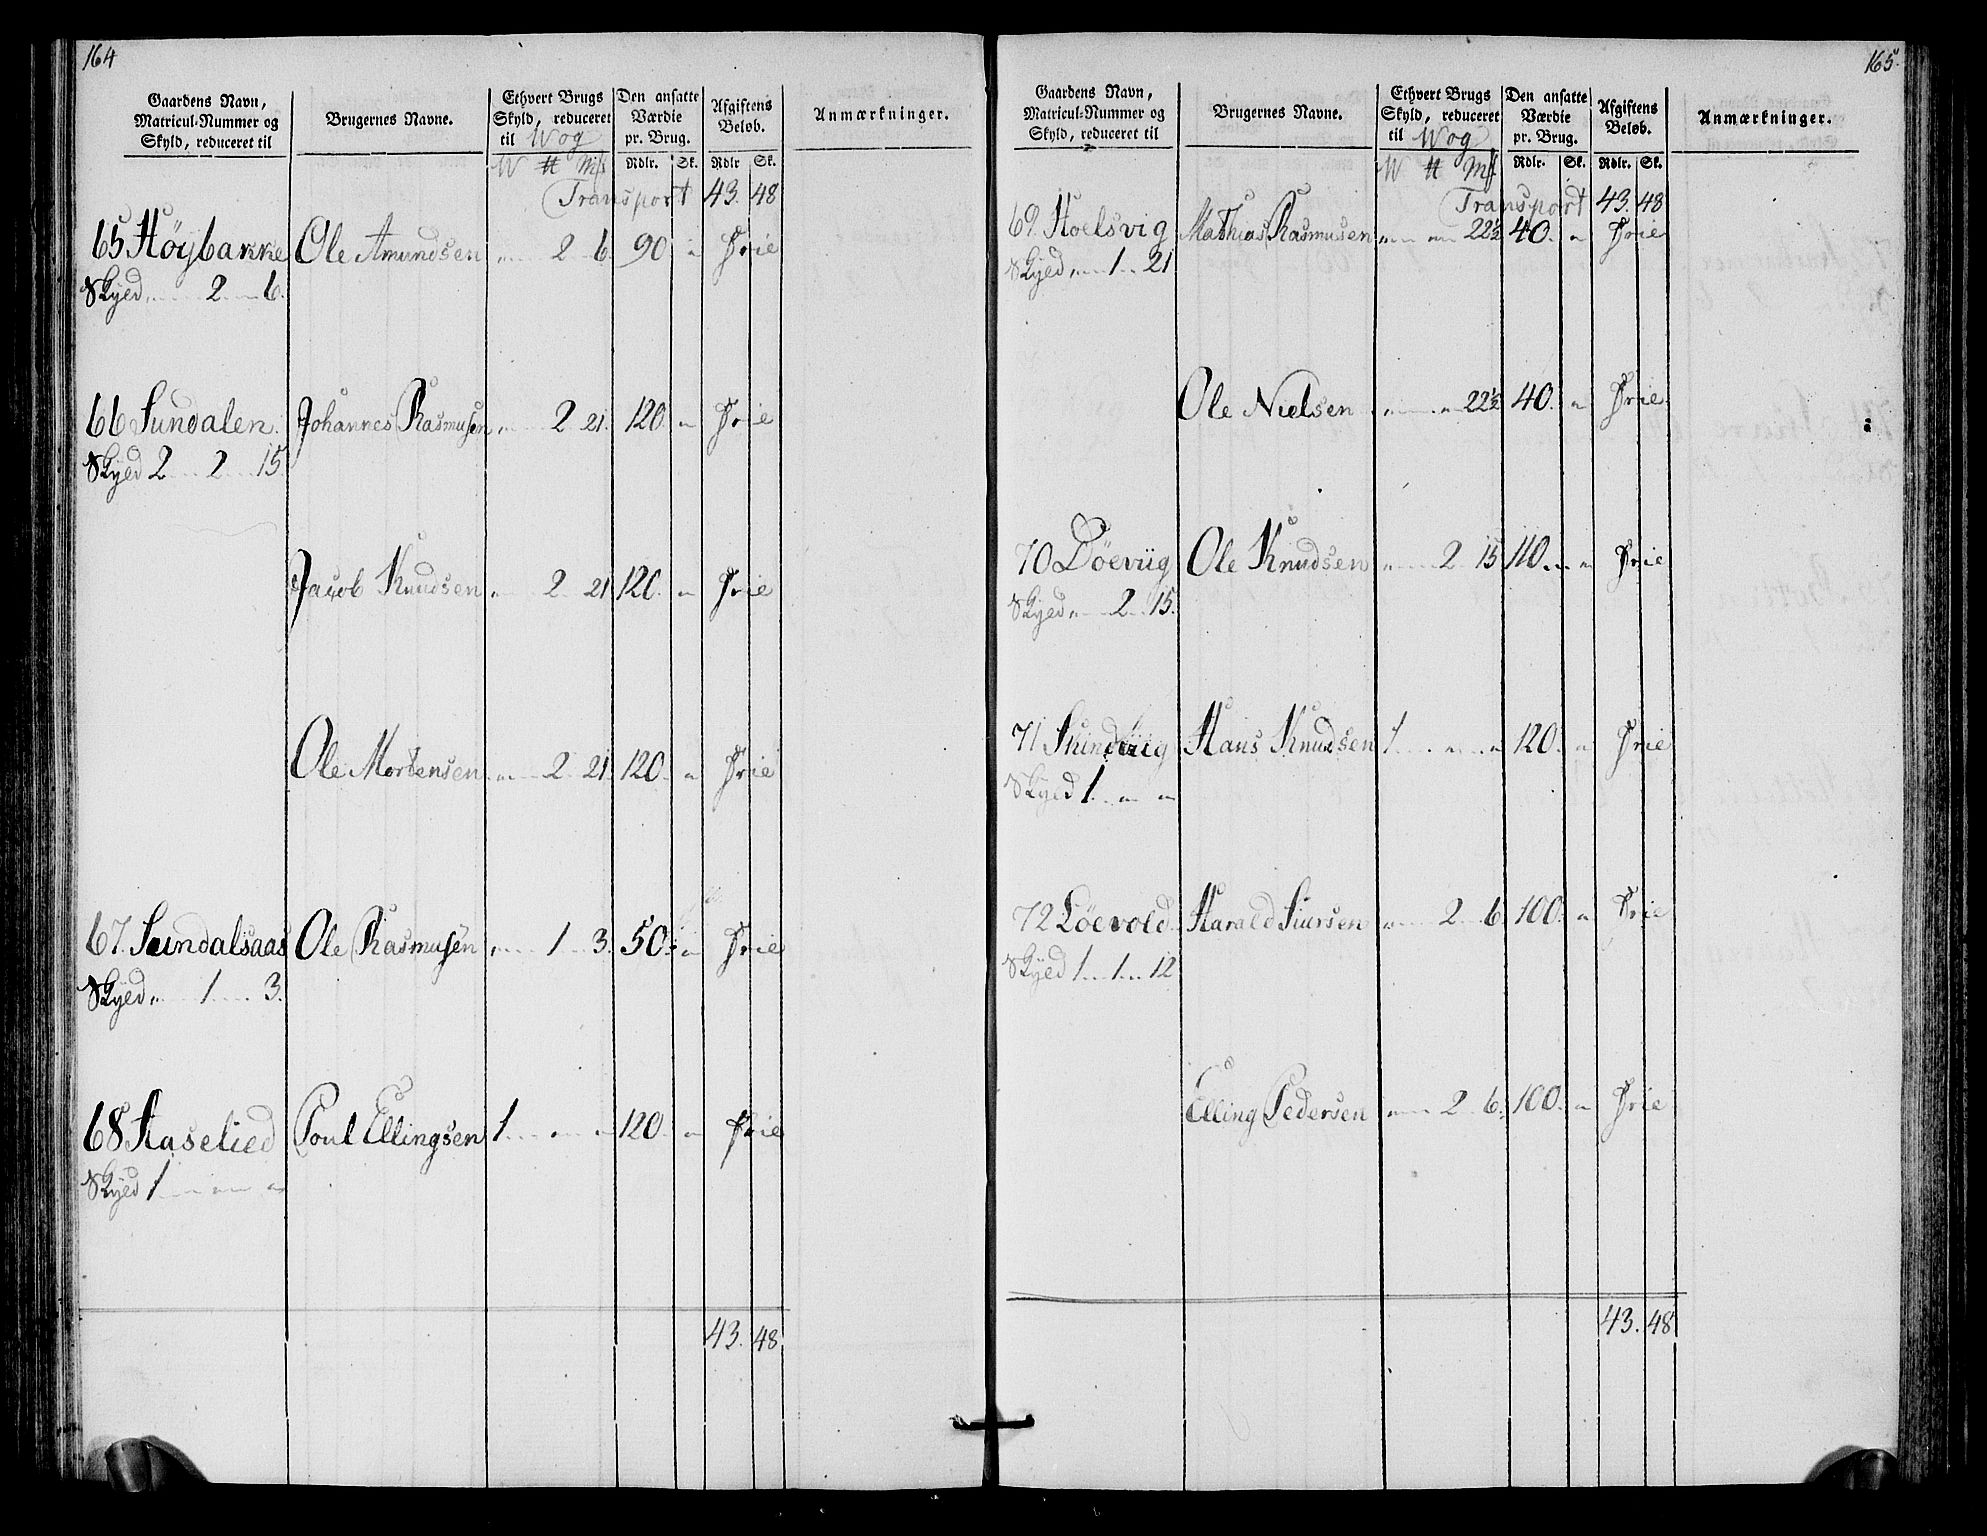 164
Gaardens Navn, Matricul-Nummer og Skyld, reduceret til | Brugernes Navne. | Ethvert Brugs Skyld, reduceret til Wog | Den ansatte Værdie pr. Brug. | Afgiftens Beløb. | Anmærkninger.
W ℔ Mk | Rdlr. Sk. | Rdlr Sk.
Transport 43. 48
65 Höybakke Ole Amundsen „ 2 6 90 „ Frie
Skyed „ 2 6.
66 Sundalen Johannes Rasmusen „ 2 21. 120. „ Frie
Skyed 2 2 15.
Jacob Knudsen „ 2 21 120. „ Frie
Ole Mortensen „ 2 21 120. „ Frie
67. Sundalsaas Ole Rasmusen „ 1 3. 50. „ Frie
Skyed „ 1 3.
68 Haselied Poul Ellingsen 1 „ „ 120. „ Frie
Skyed 1 „ „
43. 48
165.
Gaardens Navn, Matricul-Nummer og Skyld, reduceret til | Brugernes Navne. | Ethvert Brugs Skyld, reduceret til Wog | Den ansatte Værdie pr. Brug. | Afgiftens Beløb. | Anmærkninger.
W ℔ Mk | Rdlr. Sk. | Rdlr. Sk.
Transport 43. 48
69. Hoelsvig Mathias Rasmusen „ „ 22½ 40. „ Frie
Skyed „ 1 21
Ole Nielsen „ „ 22½ 40. „ Frie
70 Döeviig Ole Knudsen „ 2 15 110. „ Frie
Skyed „ 2 15.
71 Hans Knudsen 1 „ „ 120. „ Frie
Skyed 1. „ „
72 Löevold Harald Siursen „ 2 6 100. „ Frie
Skyed 1 1 12
Elling Pedersen „ 2 6. 100. „ Frie
43. 48